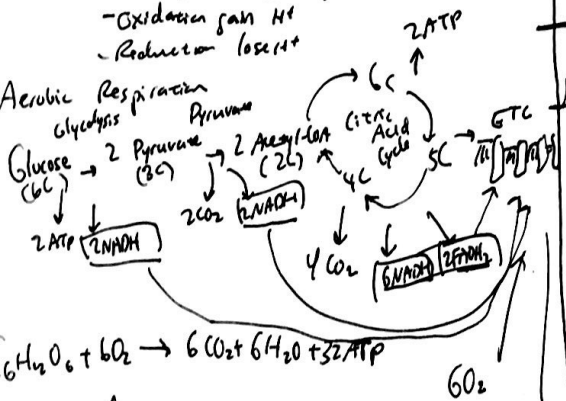 -Oxidation gain H+
-Reduction lose H+
Aerobic Respiration
Glycolysis
Pyruvate
Glucose → 2 Pyruvate → 2 Acetyl-CoA
(6C)
(3C)
(2C)
2ATP
2NADH
2CO2
2NADH
2ATP
6C
Citric
Acid
Cycle
5C
4C
4CO2
6NADH
2FADH2
ETC
6H12O6 + 6O2 → 6CO2 + 6H2O + 32ATP
6O2